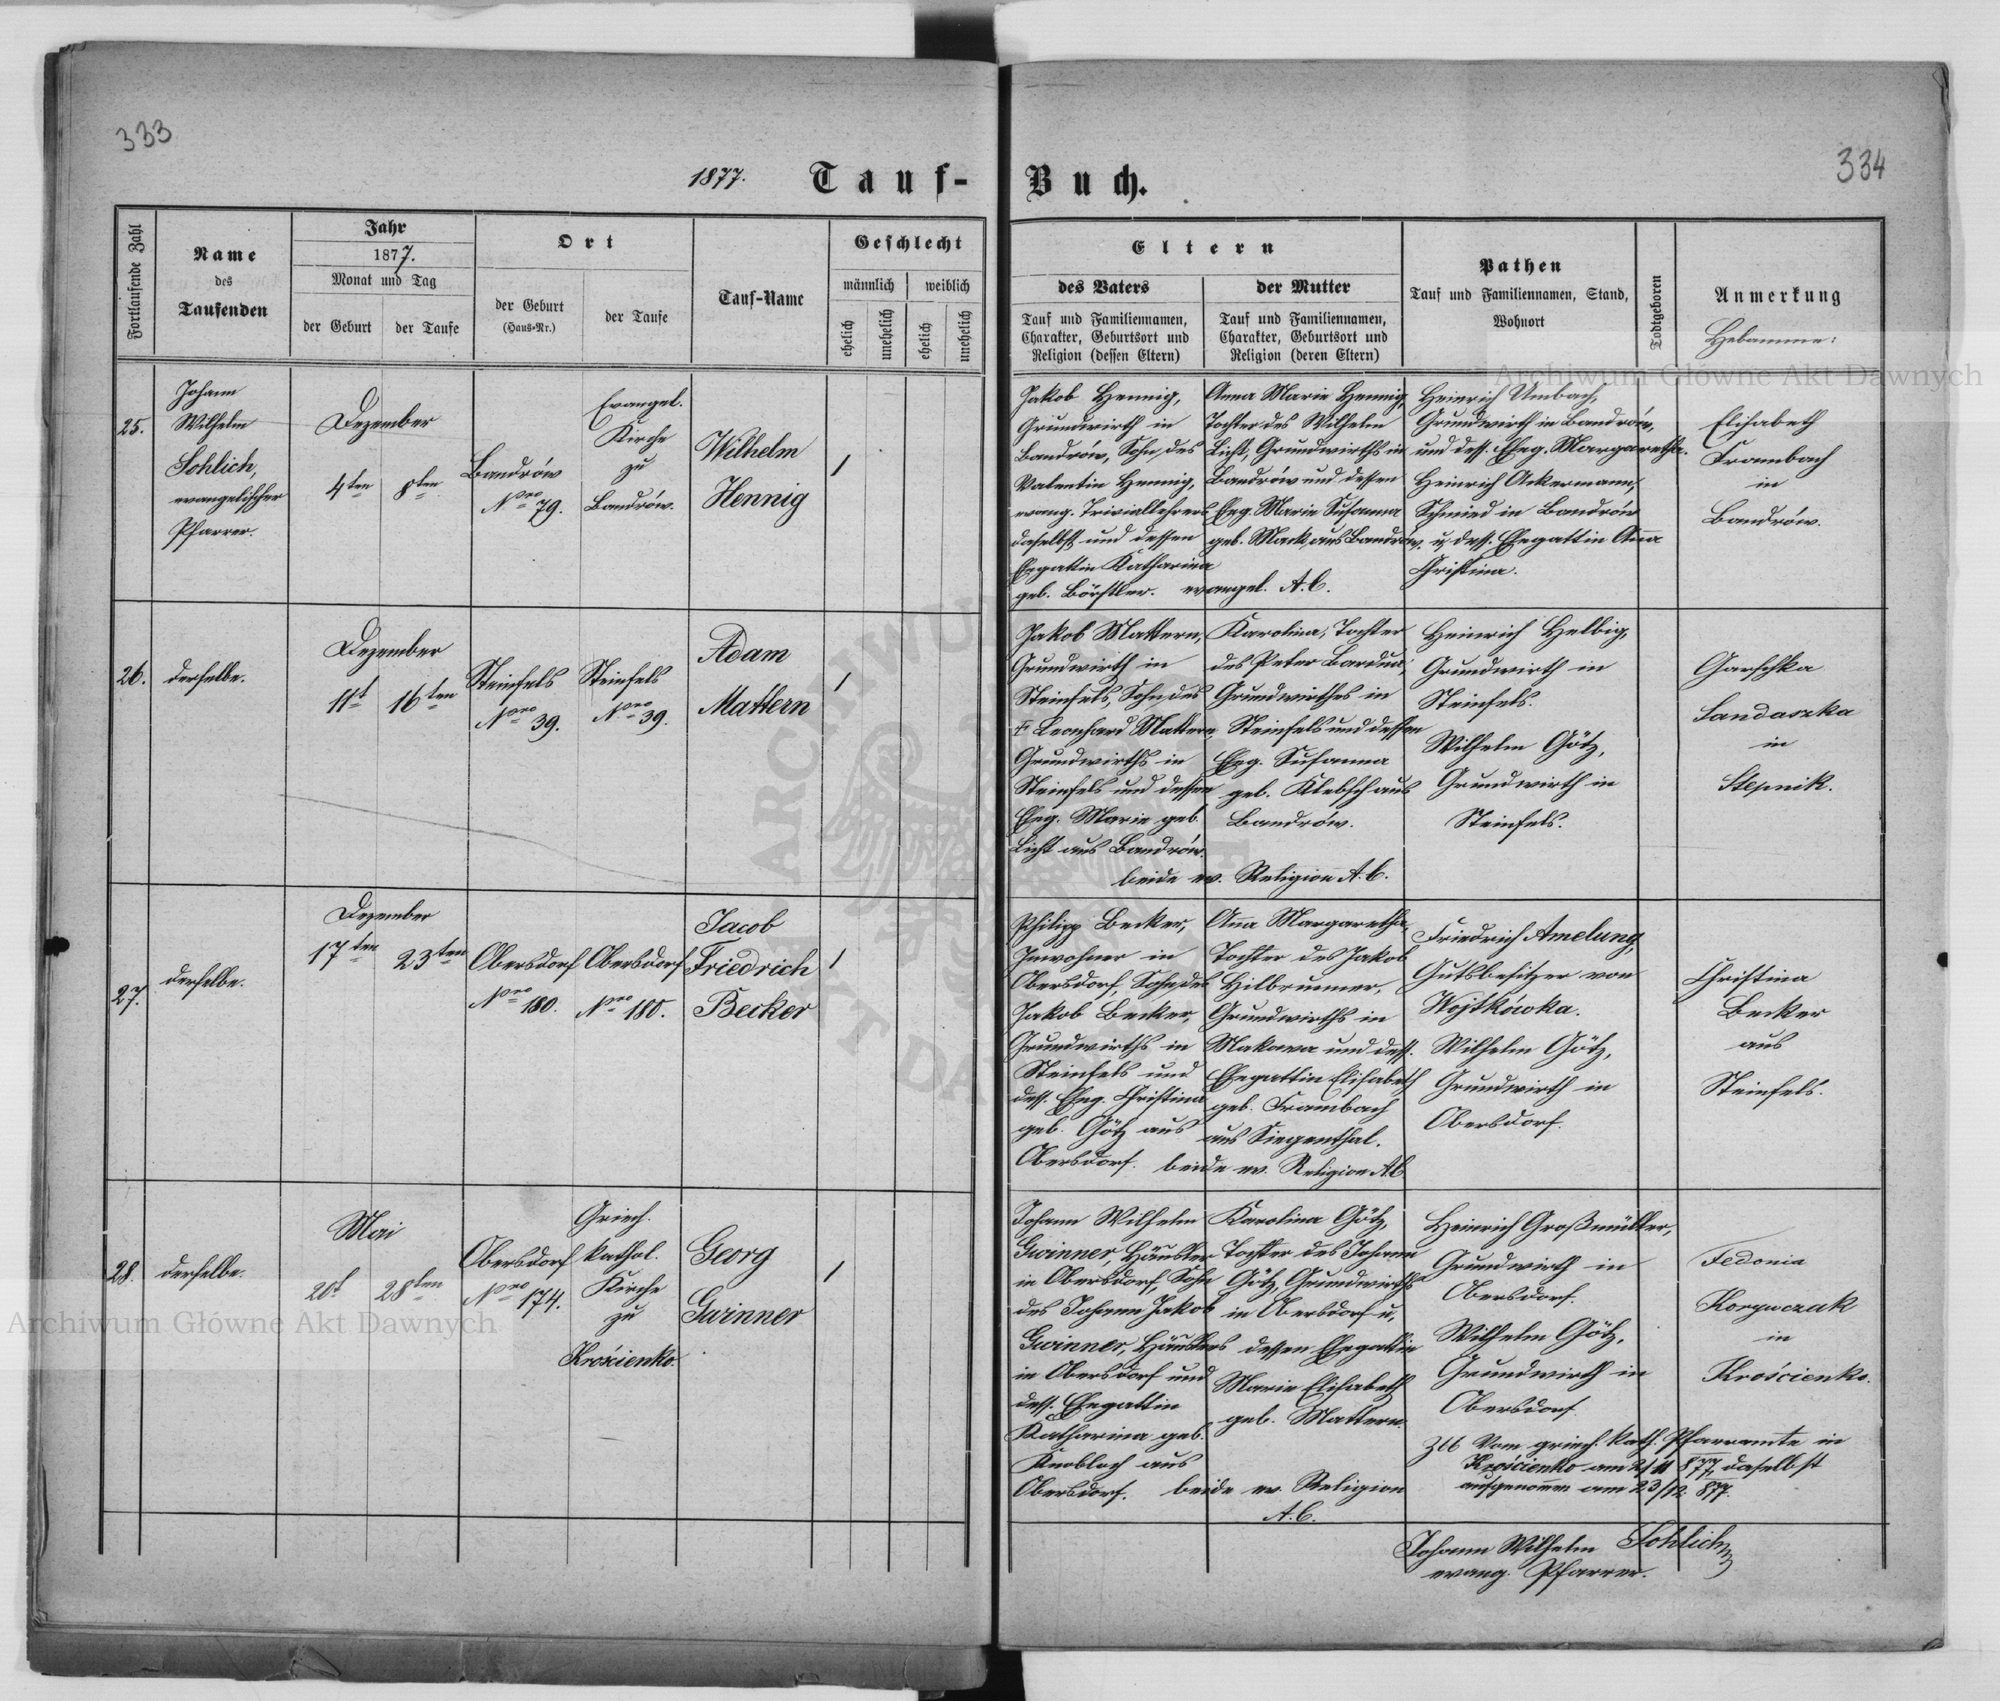 333
334
1877. Tauf-Buch.
Fortlaufende Zahl
Name
des
Taufenden
Jahr
1877.
Monat und Tag
der Geburt
der Taufe
Ort
der Geburt
(Haus-Nr.)
der Taufe
Tauf-Name
Geschlecht
männlich
weiblich
ehelich
unehelich
ehelich
unehelich
Eltern
des Vaters
Tauf und Familiennamen,
Charakter, Geburtsort und
Religion (dessen Eltern)
der Mutter
Tauf und Familiennamen,
Charakter, Geburtsort und
Religion (deren Eltern)
Pathen
Tauf und Familiennamen, Stand,
Wohnort
Todtgeboren
Anmerkung
Hebamme:
25.
Johann
Wilhelm
Sohlich,
evangelischer
Pfarrer.
Dezember
4ten
8ten
Bandrów
Nro 79.
Evangel.
Kirche
zu
Bandrów.
Wilhelm
Hennig
1
Jakob Hennig,
Grundwirth in
Bandrów, Sohn des
Valentin Hennig,
evang. Triviallehrers
daselbst und dessen
Ehegattin Katharina
geb. Börstler.
Anna Marie Hennig,
Tochter des Wilhelm
Licht, Grundwirths in
Bandrów und dessen
Eheg. Marie Susanna
geb. Mack aus Bandrów.
evangel. A.C.
Heinrich Umbach,
Grundwirth in Bandrów,
und dess. Eheg. Margaretha.
Heinrich Ackermann,
Schmied in Bandrów
u. dess. Ehegattin Anna
Christina.
Elisabeth
Frambach
in
Bandrów.
26.
derselbe.
Dezember
11t
16ten
Steinfels
Nro 39.
Steinfels
Nro 39.
Adam
Mattern
1
Jakob Mattern,
Grundwirth in
Steinfels, Sohn des
† Leonhard Mattern,
Grundwirths in
Steinfels und dessen
Eheg. Marie geb.
Licht aus Bandrów.
Karolina, Tochter
des Peter Bardua,
Grundwirthes in
Steinfels und dessen
Eheg. Susanna
geb. Klebsch aus
Bandrów.
beide ev. Religion A.C.
Heinrich Helbig,
Grundwirth in
Steinfels.
Wilhelm Götz,
Grundwirth in
Steinfels.
Garschka
Sandaszka
in
Stepnik.
27.
derselbe.
Dezember
17ten
23ten
Obersdorf
Nro 180.
Obersdorf
Nro 180.
Jacob
Friedrich
Becker
1
Philipp Becker,
Inwohner in
Obersdorf, Sohn des
Jakob Becker,
Grundwirths in
Steinfels und
dess. Eheg. Christina
geb. Götz aus
Obersdorf.
Anna Margaretha,
Tochter des Jakob
Hilbrunner,
Grundwirths in
Makowa und dess.
Ehegattin Elisabeth
geb. Frambach
aus Siegenthal.
beide ev. Religion A.C.
Friedrich Amelung,
Gutsbesitzer von
Wojtkówka.
Wilhelm Götz,
Grundwirth in
Obersdorf.
Christina
Becker
aus
Steinfels.
28.
derselbe.
Mai
20t
28ten
Obersdorf
Nro 174.
Griech.
kathol.
Kirche
zu
Krościenko.
Georg
Gwinner
1
Johann Wilhelm
Gwinner, Häusler
in Obersdorf, Sohn
des Johann Jakob
Gwinner, Häuslers
in Obersdorf und
dess. Ehegattin
Katharina geb.
Knobloch aus
Obersdorf.
Karolina Götz,
Tochter des Johann
Götz, Grundwirths
in Obersdorf u.
dessen Ehegattin
Marie Elisabeth
geb. Mattern.
beide ev. Religion
A.C.
Heinrich Großmüller,
Grundwirth in
Obersdorf.
Wilhelm Götz,
Grundwirth in
Obersdorf.
Vom griech. kath. Pfarramte in
Krościenko am 2/11 877, daselbst
aufgenommen am 23/12 877.
Fedonia
Korywczak
in
Krościenko.
Johann Wilhelm Sohlich
evang. Pfarrer.
Archiwum Główne Akt Dawnych
Archiwum Główne Akt Dawnych